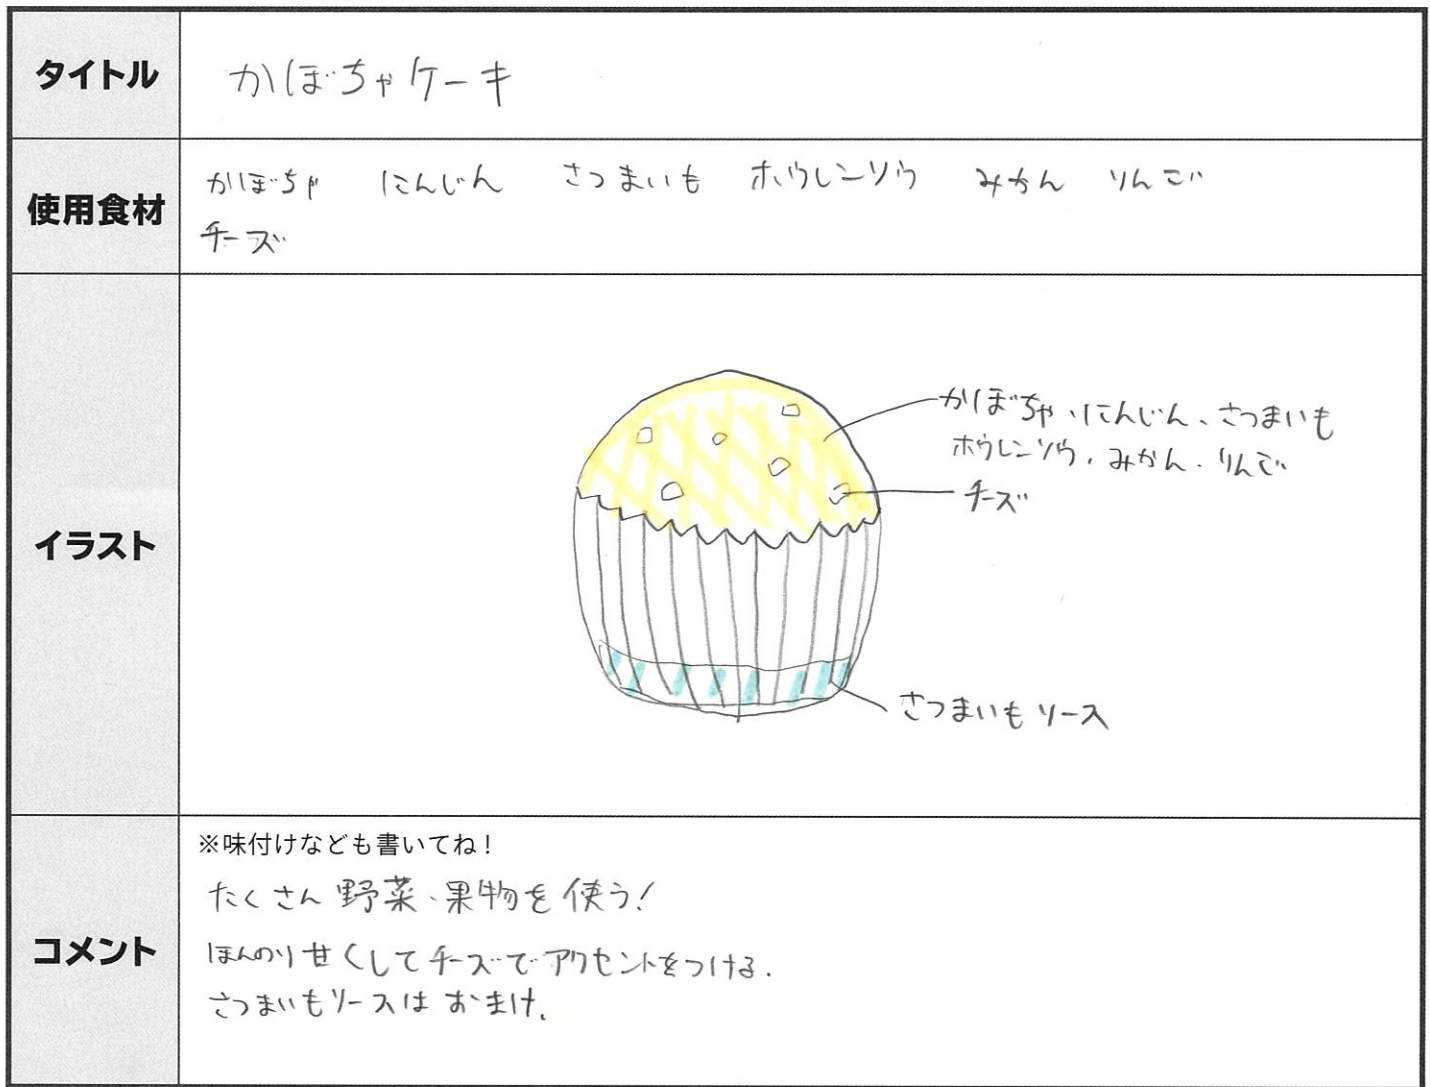 タイトル
かぼちゃケーキ
使用食材
かぼちゃ にんじん さつまいも ホウレンソウ みかん りんご
チーズ
イラスト
かぼちゃ、にんじん、さつまいも
ホウレンソウ、みかん、りんご
チーズ
さつまいもソース
コメント
※味付けなども書いてね!
たくさん野菜、果物を使う!
ほんのり甘くしてチーズでアクセントをつける.
さつまいもソースはおまけ.